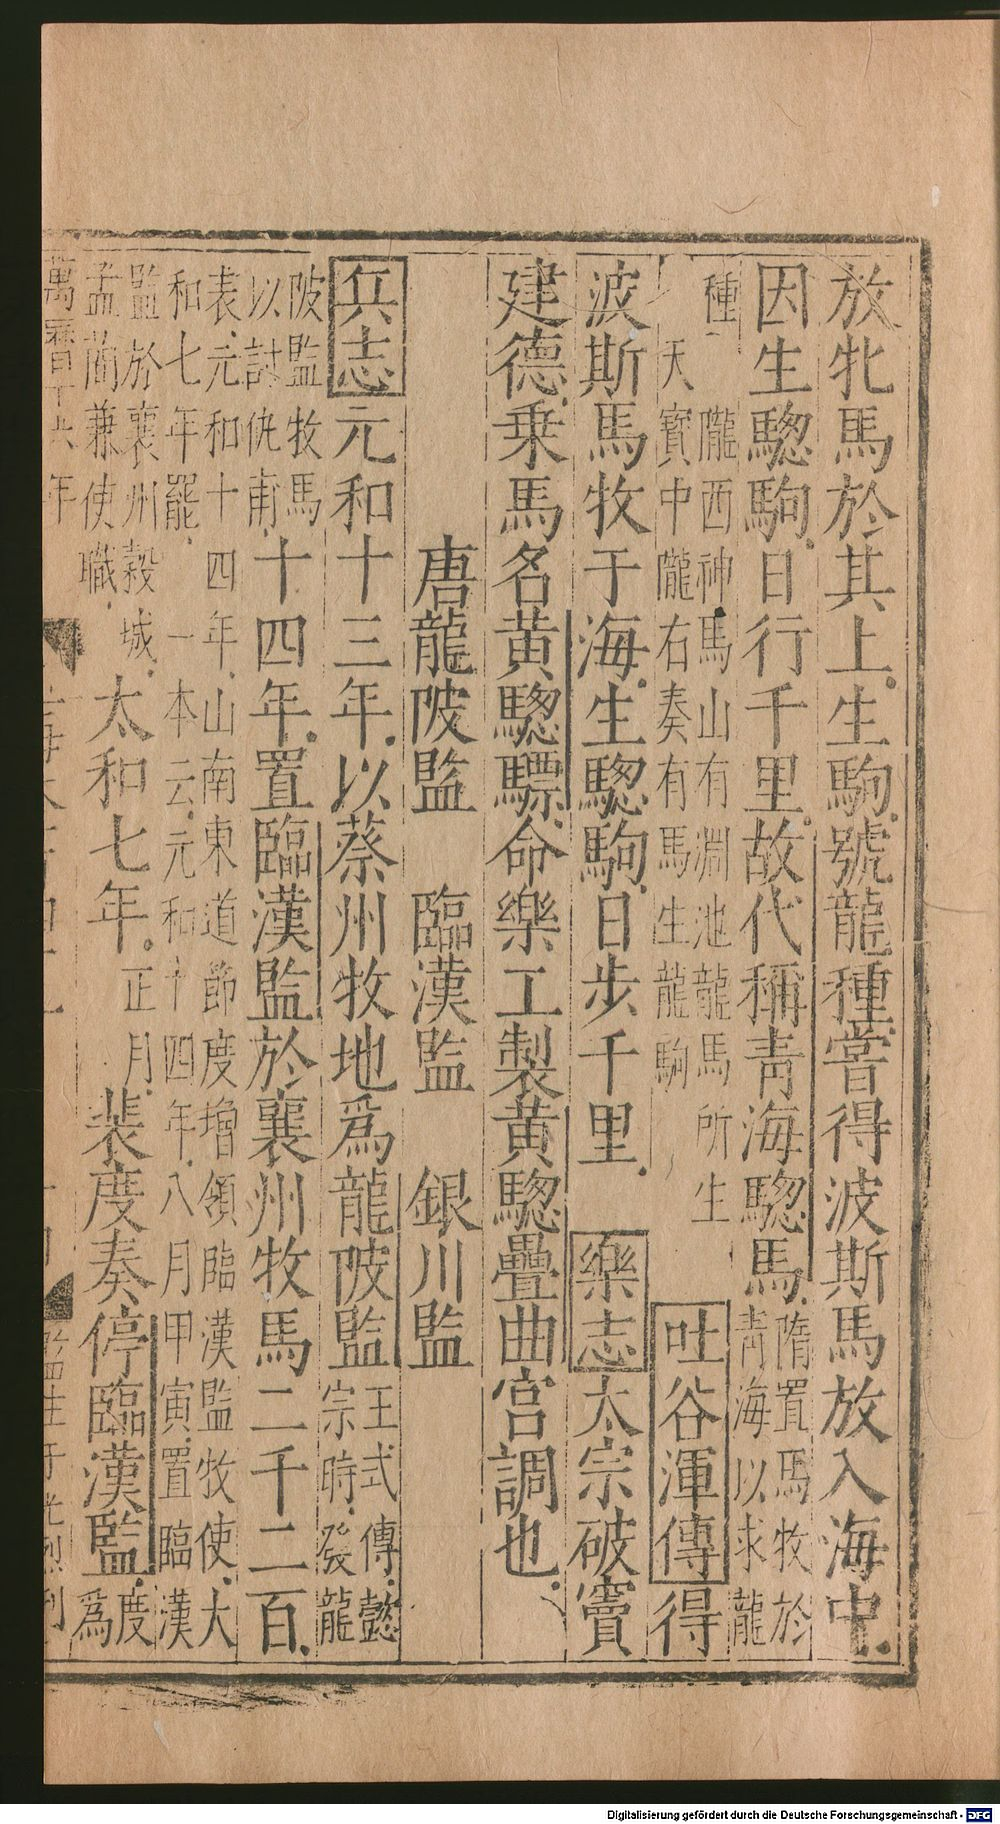 放牝馬於其上生駒號龍種嘗得波斯馬放入海中
因生驄駒日行千里故代稱青海驄馬
隋置馬牧於
青海以求龍
種 隴西神馬山有淵池龍馬所生
天寶中隴右奏有馬生龍駒
吐谷渾傳得
波斯馬牧于海生驄駒日步千里 樂志太宗破竇
建德乗馬名黄驄驃命樂工製黄驄疊曲宫調也
唐龍陂監 臨漢監 銀川監
兵志元和十三年以蔡州牧地爲龍陂監
王式傳懿
宗時發龍
陂監牧馬
以討仇甫
十四年置臨漢監於襄州牧馬二千二百
表元和十四年山南東道節度增領臨漢監牧使大
和七年罷 一本云元和十四年八月甲寅置臨漢
監於襄州穀城
孟簡兼使職
太和七年
正月
裴度奏停臨漢監
度
爲
萬曆 年
監生